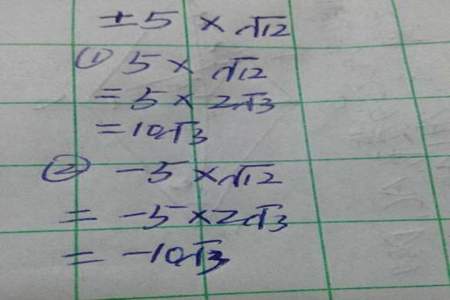 ±5 × √12
① 5 × √12
= 5 × 2√3
= 10√3
② -5 × √12
= -5 × 2√3
= -10√3